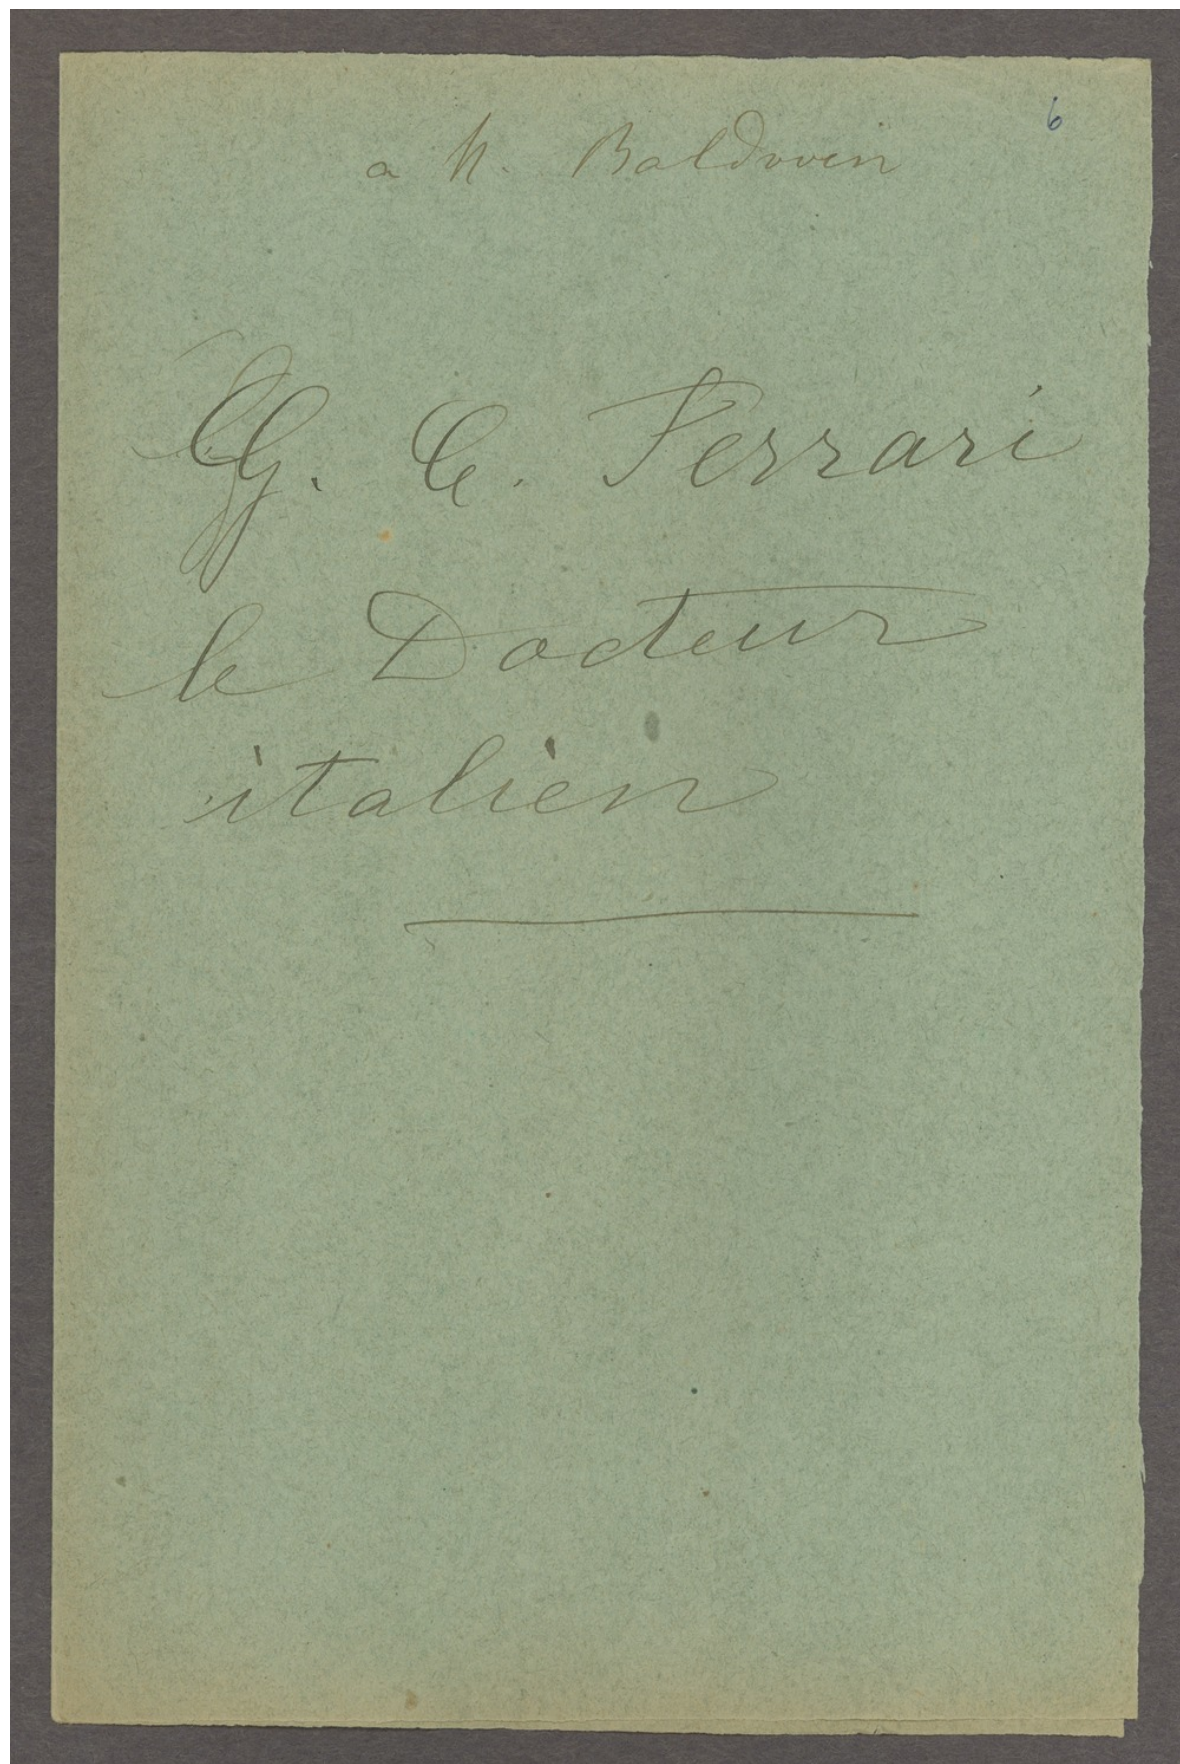 6
a M. Baldwin
G. C. Ferrari
le Docteur
italien